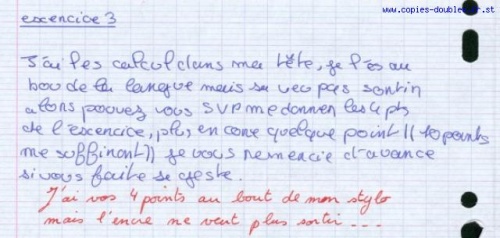 www.copies-doubles.ir.st
exercice 3
J'ai les calcul dans ma tête, je l'es au
bou de la langue mais sa veu pas sortir
alors pouvez vous SVP me donner les 4 pts
de l'exercice, plus encore quelque point (( 10 points
me suffiront )) je vous remercie d'avance
si vous faite se geste.
J'ai vos 4 points au bout de mon stylo
mais l'encre ne veut plus sortir ...